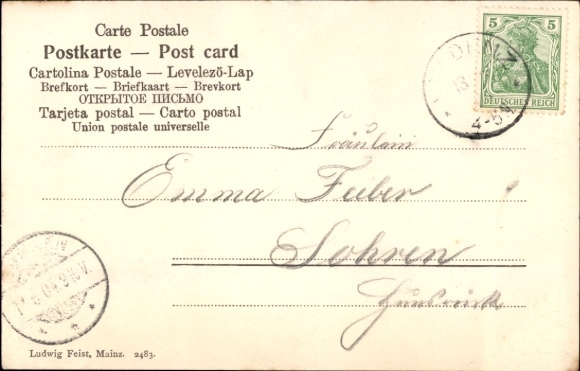 Carte Postale
Postkarte — Post card
Cartolina Postale — Levelező-Lap
Brefkort — Briefkaart — Brevkort
ОТКРЫТОЕ ПИСЬМО
Tarjeta postal — Carto postal
Union postale universelle
5 5
DEUTSCHES REICH
4-5
Fräulein
Emma Feiber
Sohren
Hunsrück
Ludwig Feist, Mainz. 2483.